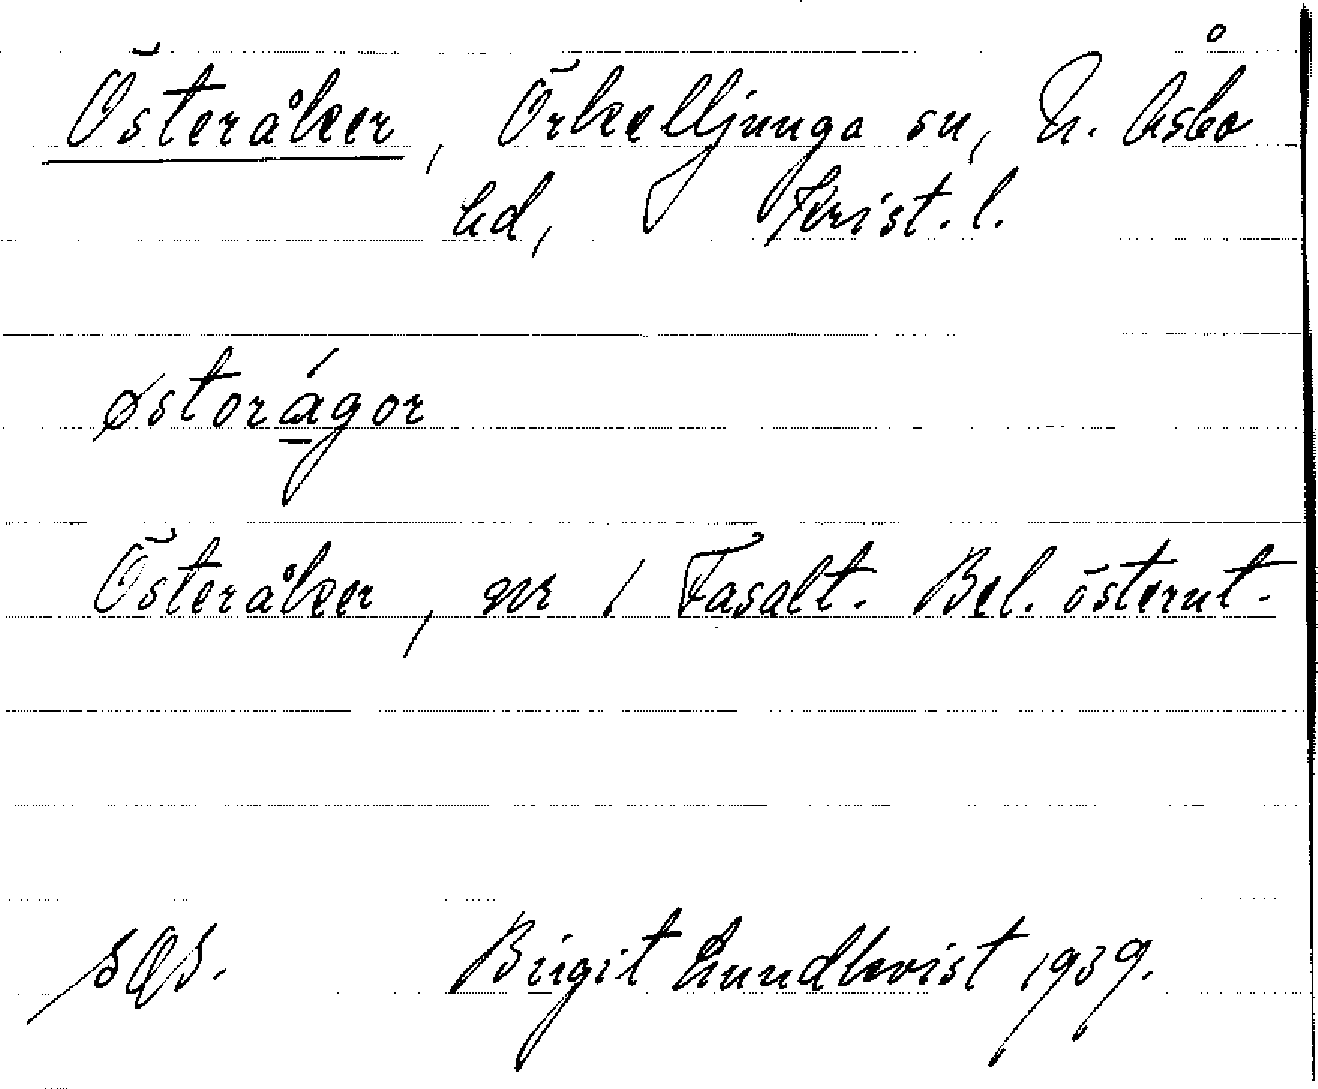 Österåker, Örkelljunga sn, N. Åsbo
hd, Krist. l.
østorágor
Österåker, nr 1 Fasalt. Bel. österut.
sØs.
Birgit Lundkvist 1939.